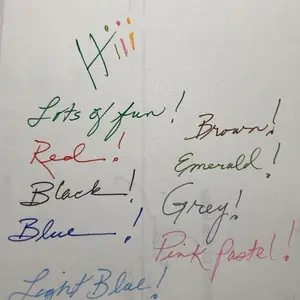 Hiiii
Lots of fun!
Red!
Black!
Blue!
Light Blue!
Brown!
Emerald!
Grey!
Pink Pastel!